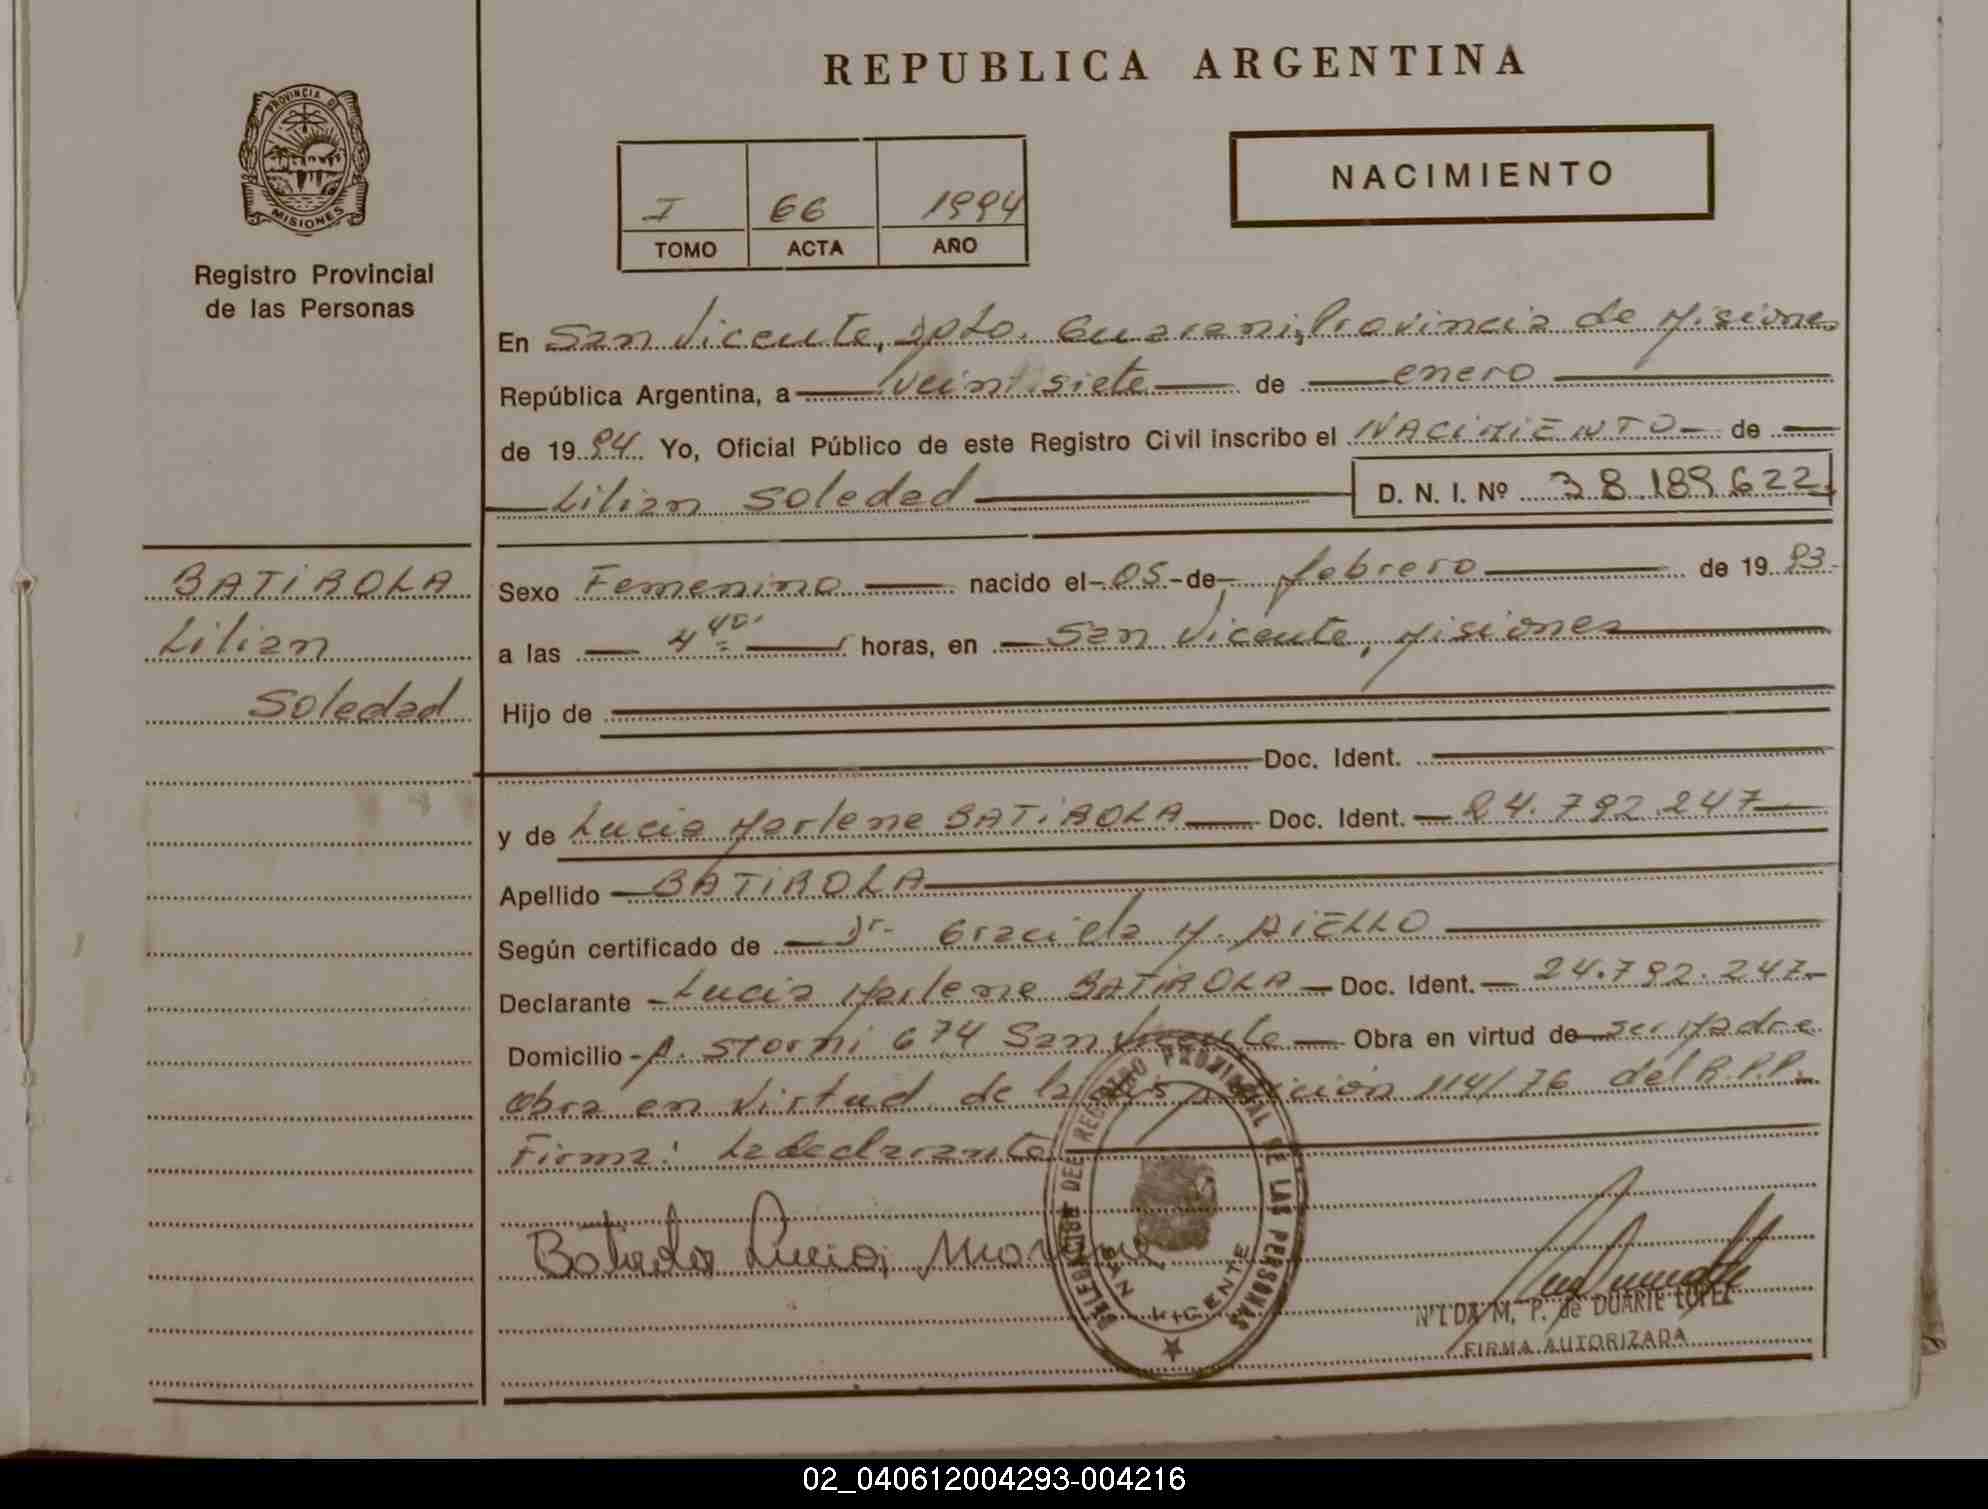 REPUBLICA ARGENTINA
PROVINCIA DE
MISIONES
Registro Provincial
de las Personas
I 66 1994
TOMO ACTA AÑO
NACIMIENTO
En San Vicente, Dpto. Guarani, Provincia de Misiones
República Argentina, a veintisiete de enero
de 1994 Yo, Oficial Público de este Registro Civil inscribo el NACIMIENTO de
Lilian Soledad D. N. I. Nº 38.189.622
BATIROLA
Lilian
Soledad
Sexo Femenino nacido el 05 de febrero de 1993
a las 4 40 horas, en San Vicente, Misiones
Hijo de
Doc. Ident.
y de Lucia Marlene BATIROLA Doc. Ident. 24.792.247
Apellido BATIROLA
Según certificado de Dr. Graciela M. AIELLO
Declarante Lucia Marlene BATIROLA Doc. Ident. 24.792.247
Domicilio A. Storni 674 San Vicente Obra en virtud de ser Madre
Obra en virtud de la disposición 114/76 del R.P.P.
Firma: La declarante
Batirola Lucia Marlene
DELEGACION DEL REGISTRO PROVINCIAL DE LAS PERSONAS
SAN VICENTE
NILDA M. P. de DUARTE LOPEZ
FIRMA AUTORIZADA
02_040612004293-004216